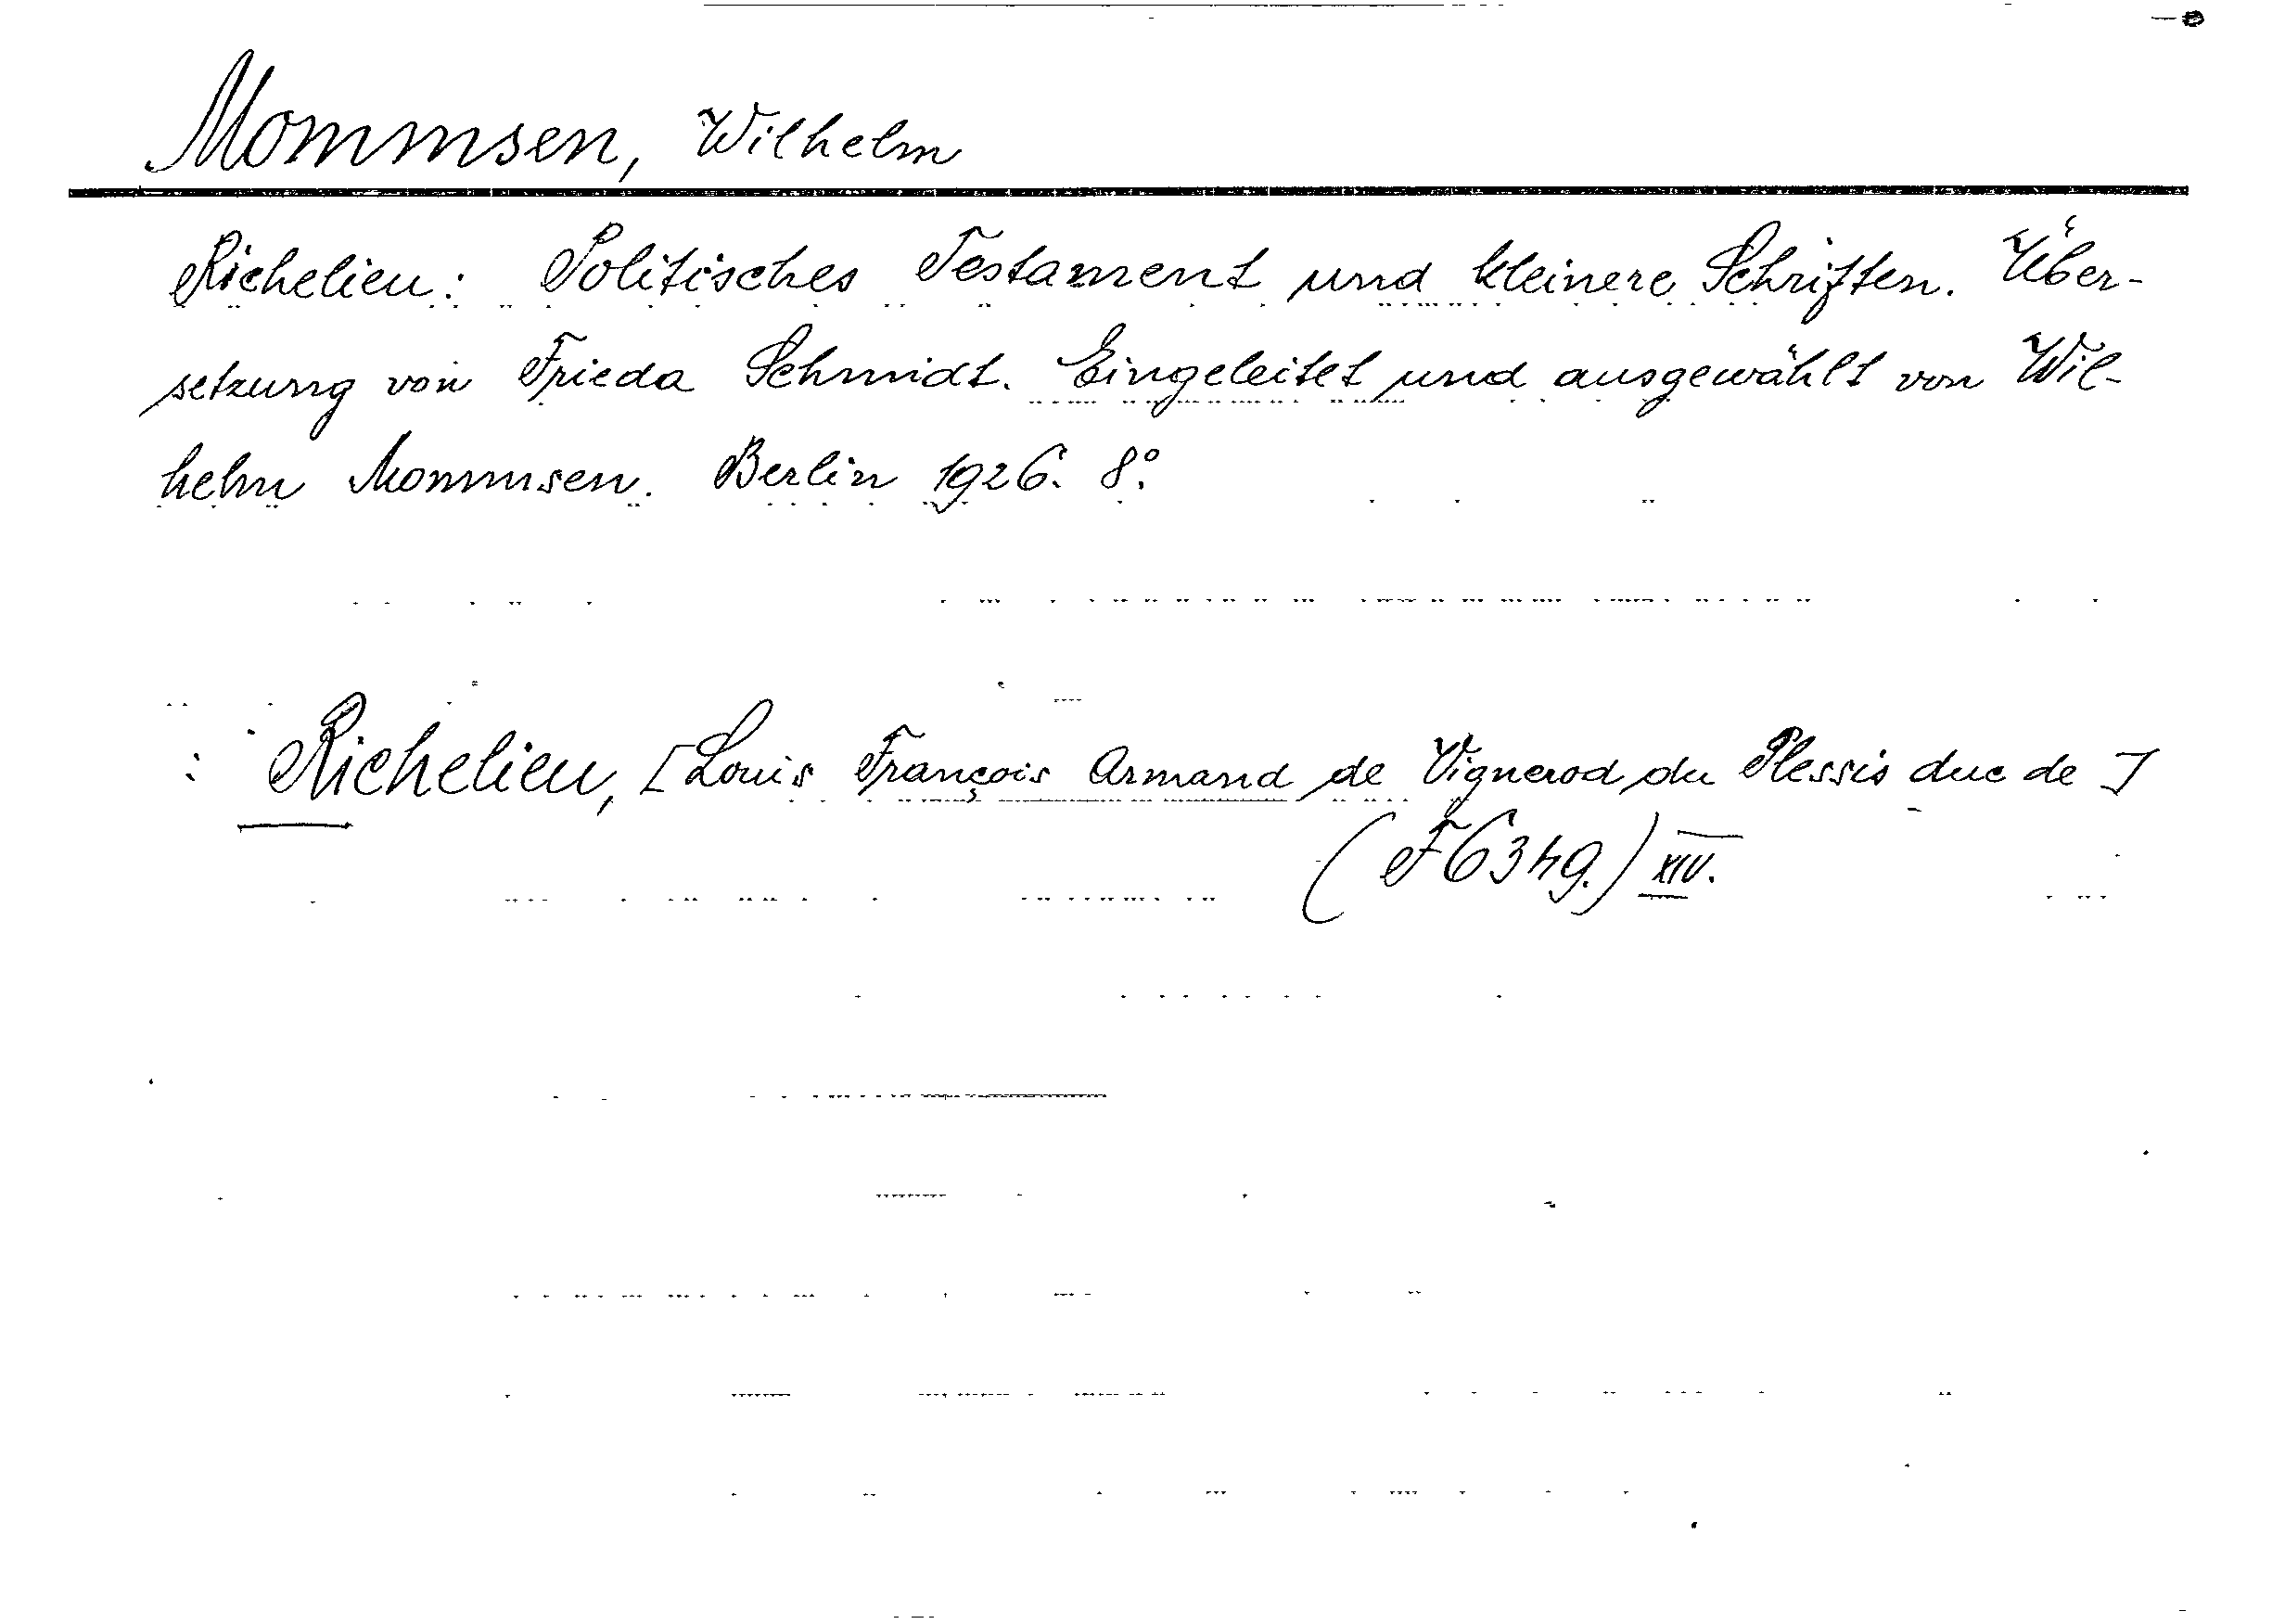 Mommsen, Wilhelm
Richelieu: Politisches Testament und kleinere Schriften. Über-
setzung von Frieda Schmidt. Eingeleitet und ausgewählt von Wil-
helm Mommsen. Berlin 1926. 8°.
: Richelieu, [Louis François Armand de Vignerod du Plessis duc de]
(F6349.) XIV.